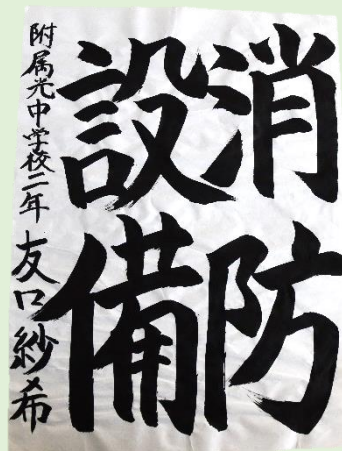 消防
設備
附属光中学校二年 友口紗希